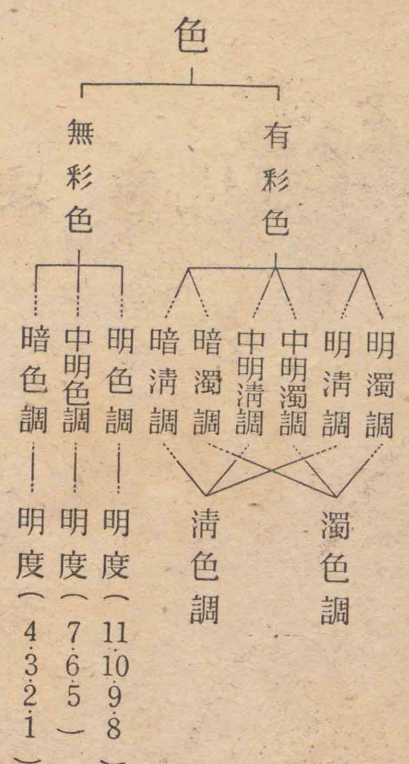 色
有彩色
無彩色
明濁調
明淸調
中明濁調
中明淸調
暗濁調
暗淸調
明色調
中明色調
暗色調
濁色調
淸色調
明度(11.10.9.8)
明度(7.6.5)
明度(4.3.2.1)